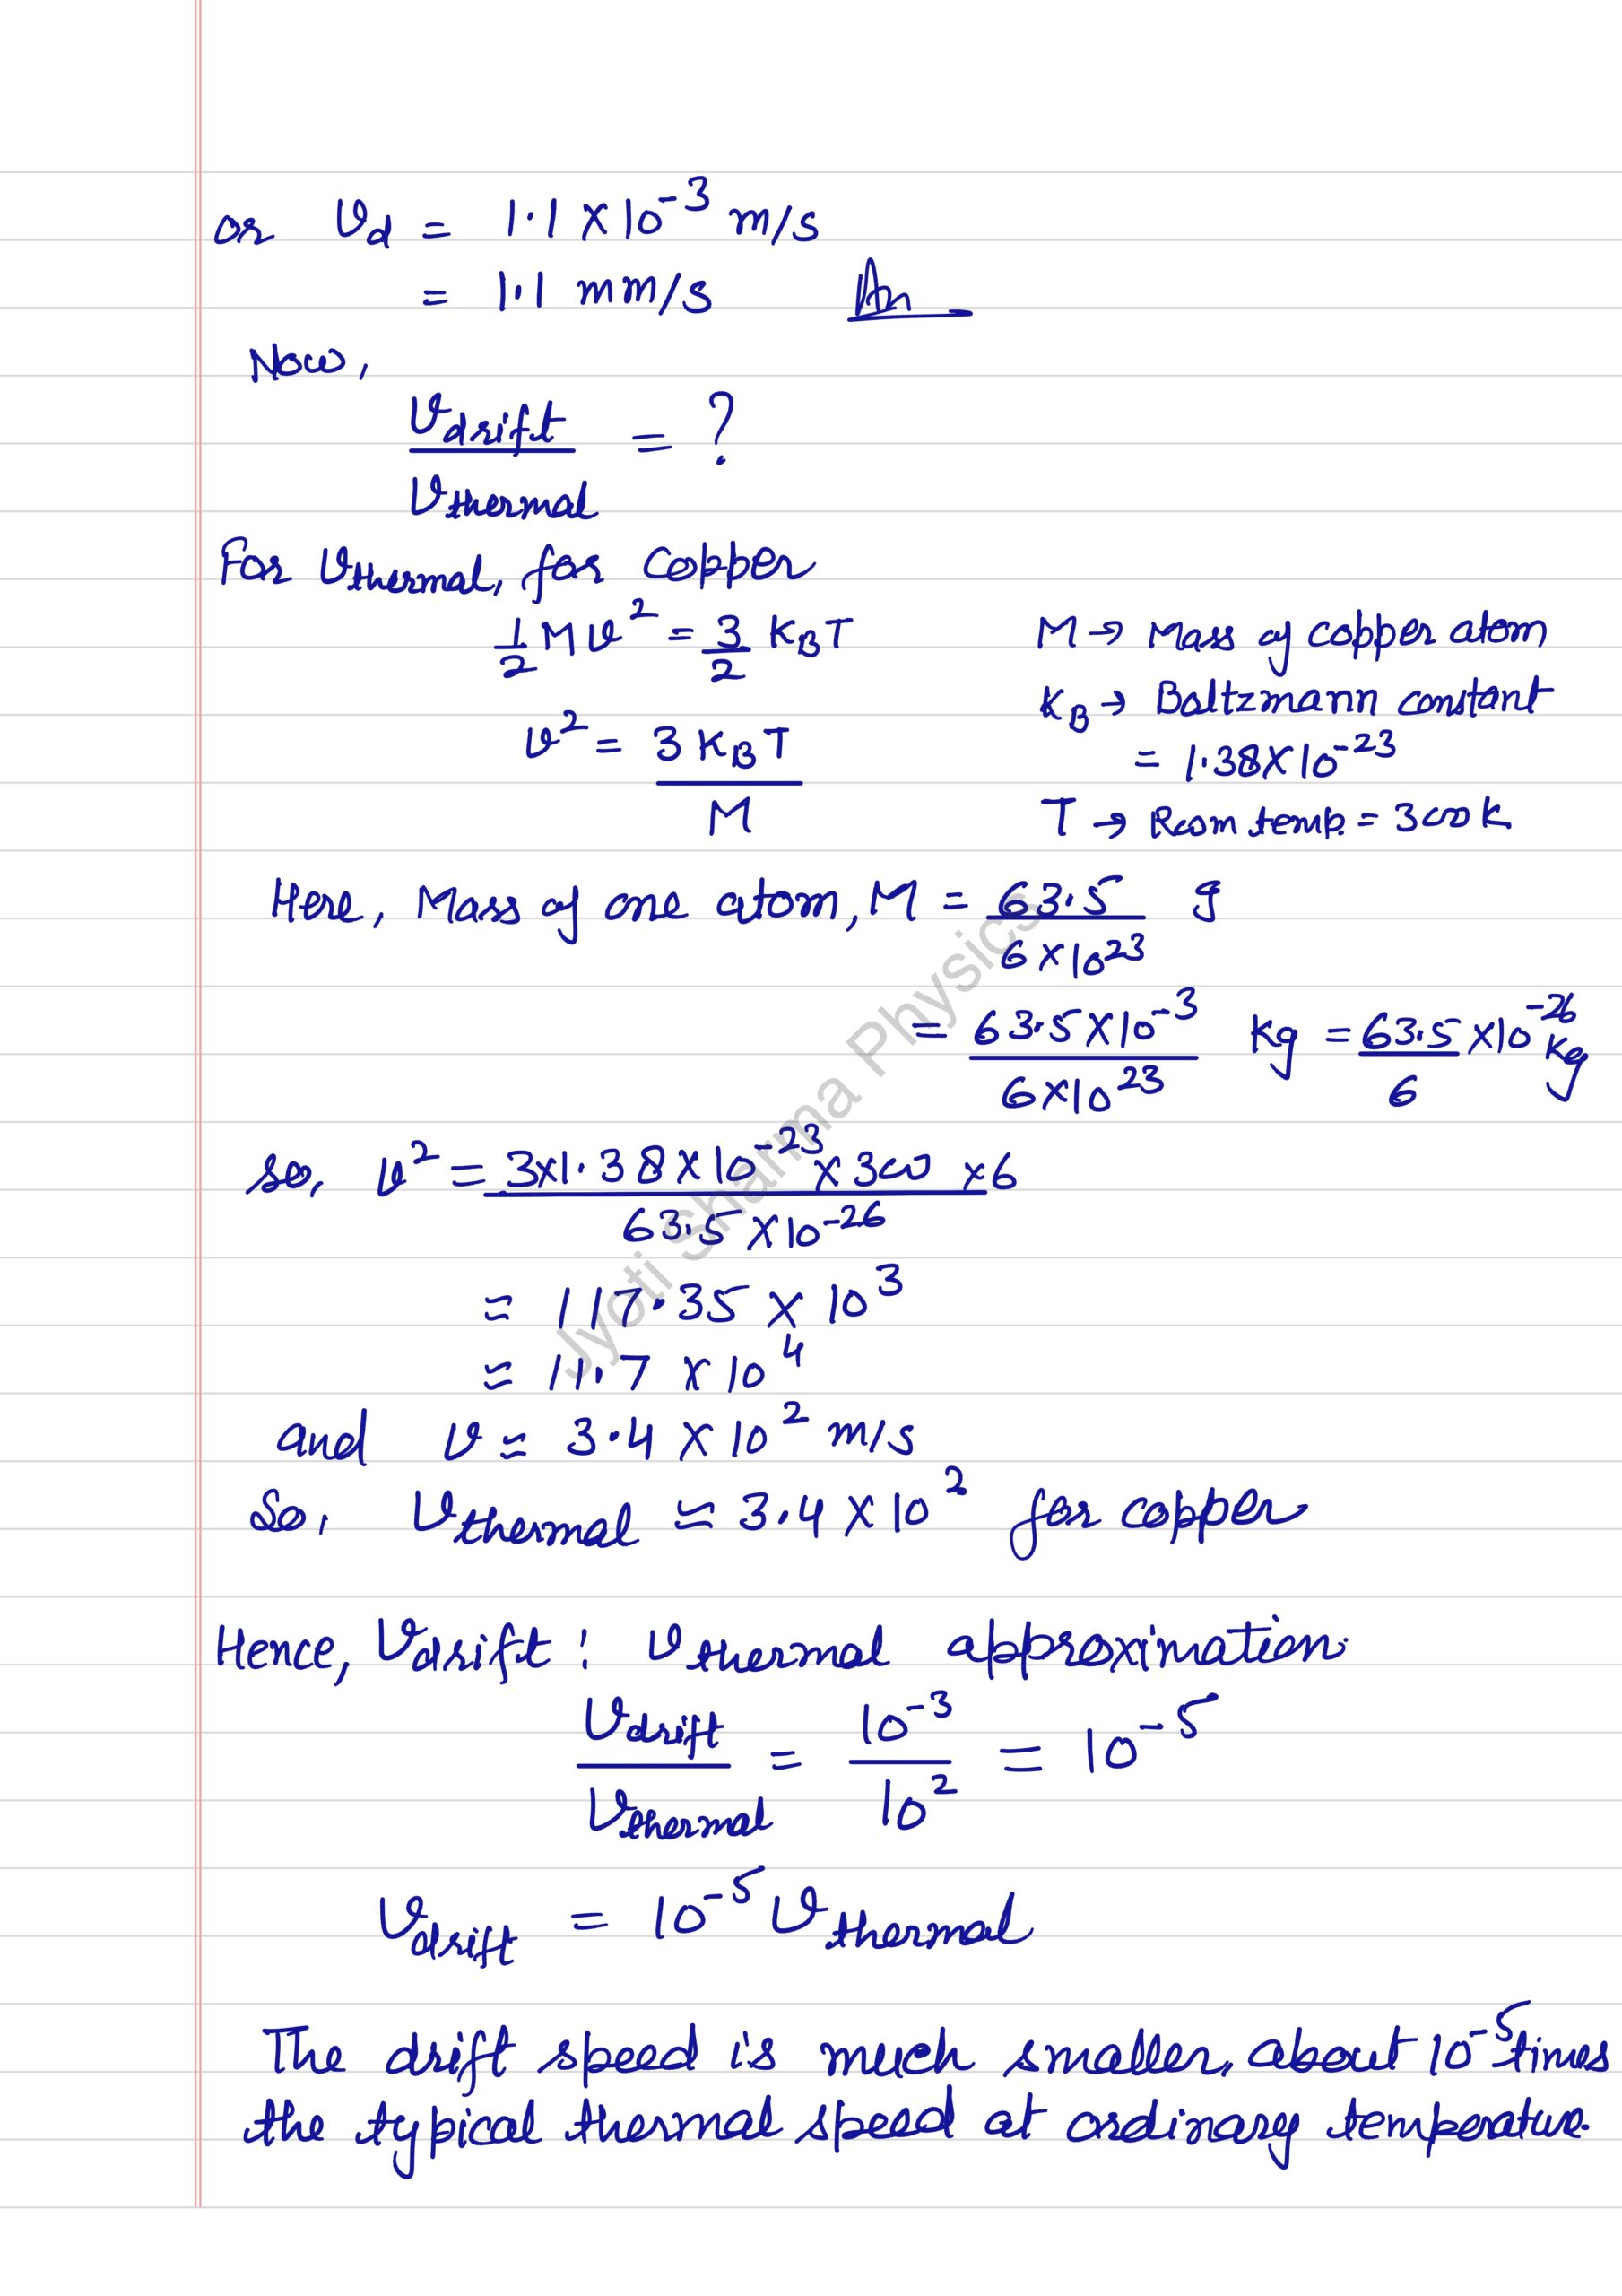 or v_d = 1.1 × 10^-3 m/s
= 1.1 mm/s Ans
Now,
v_drift / v_thermal = ?
For v_thermal, for copper
1/2 M v^2 = 3/2 K_B T
M → Mass of copper atom
v^2 = 3 K_B T / M
K_B → Boltzmann constant
= 1.38×10^-23
T → Room temp. = 300 k
Here, Mass of one atom, M = 63.5 / 6×10^23 g
= 63.5×10^-3 / 6×10^23 Kg = 63.5 / 6 ×10^-26 kg
so, v^2 = 3×1.38×10^-23 × 300 ×6 / 63.5×10^-26
≈ 117.35 × 10^3
≈ 11.7 × 10^4
and v ≈ 3.4 × 10^2 m/s
So, v_thermal ≈ 3.4 × 10^2 for copper
Hence, v_drift : v_thermal approximation.
v_drift / v_thermal = 10^-3 / 10^2 = 10^-5
v_drift = 10^-5 v_thermal
The drift speed is much smaller, about 10^-5 times
the typical thermal speed at ordinary temperature.
Jyoti Sharma Physics